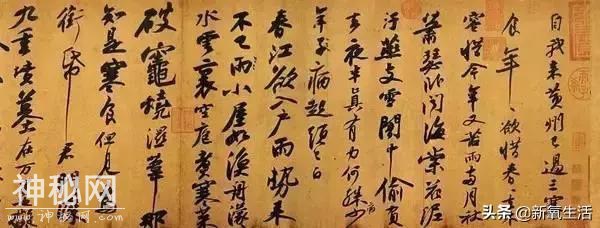 自我來黃州已過三寒
食年〻欲惜春〻去
容惜今年又苦雨兩月秋
蕭瑟卧聞海棠花泥
汙燕支雪闇中偷負
去夜半真有力何殊少
病
年子病起頭已白
春江欲入戶雨勢來
不已雨小屋如漁舟濛
水雲裏空庖煮寒菜
破竈燒濕葦那
知是寒食但見烏
銜帋君門深
九重墳墓在万里
神秘网
头条 @新氧生活